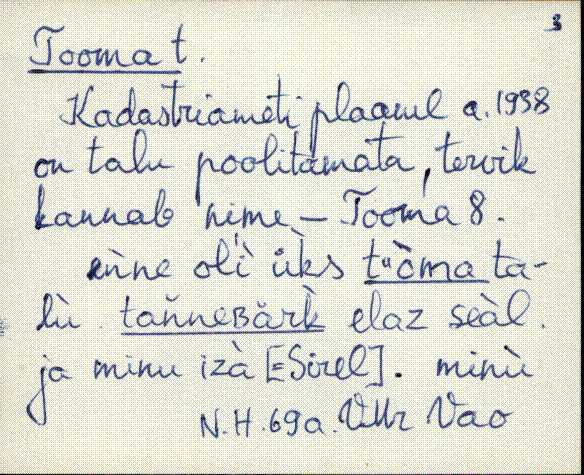 3
Tooma t.
Kadastriameti plaanil a. 1938
on talu poolitamata, tervik
kannab nime – Tooma 8.
enne oli üks tùòma ta-
lù tañneʙärk elaz seàl.
ja minu izà [= Sirel]. minù
N.H. 69a. VMr Vao